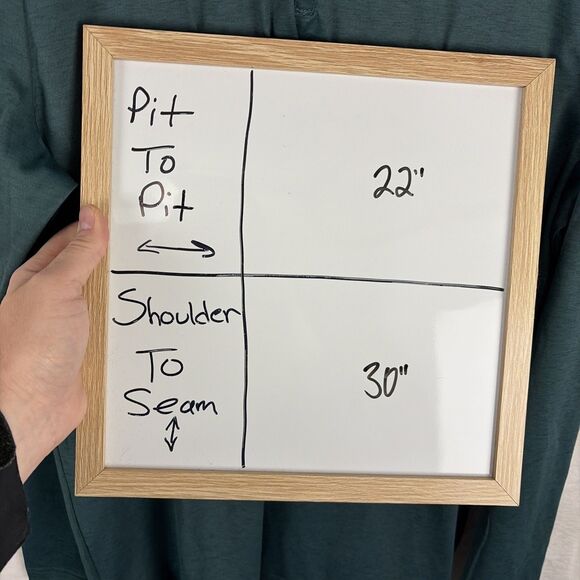 Pit
To
Pit
22"
Shoulder
To
Seam
30"